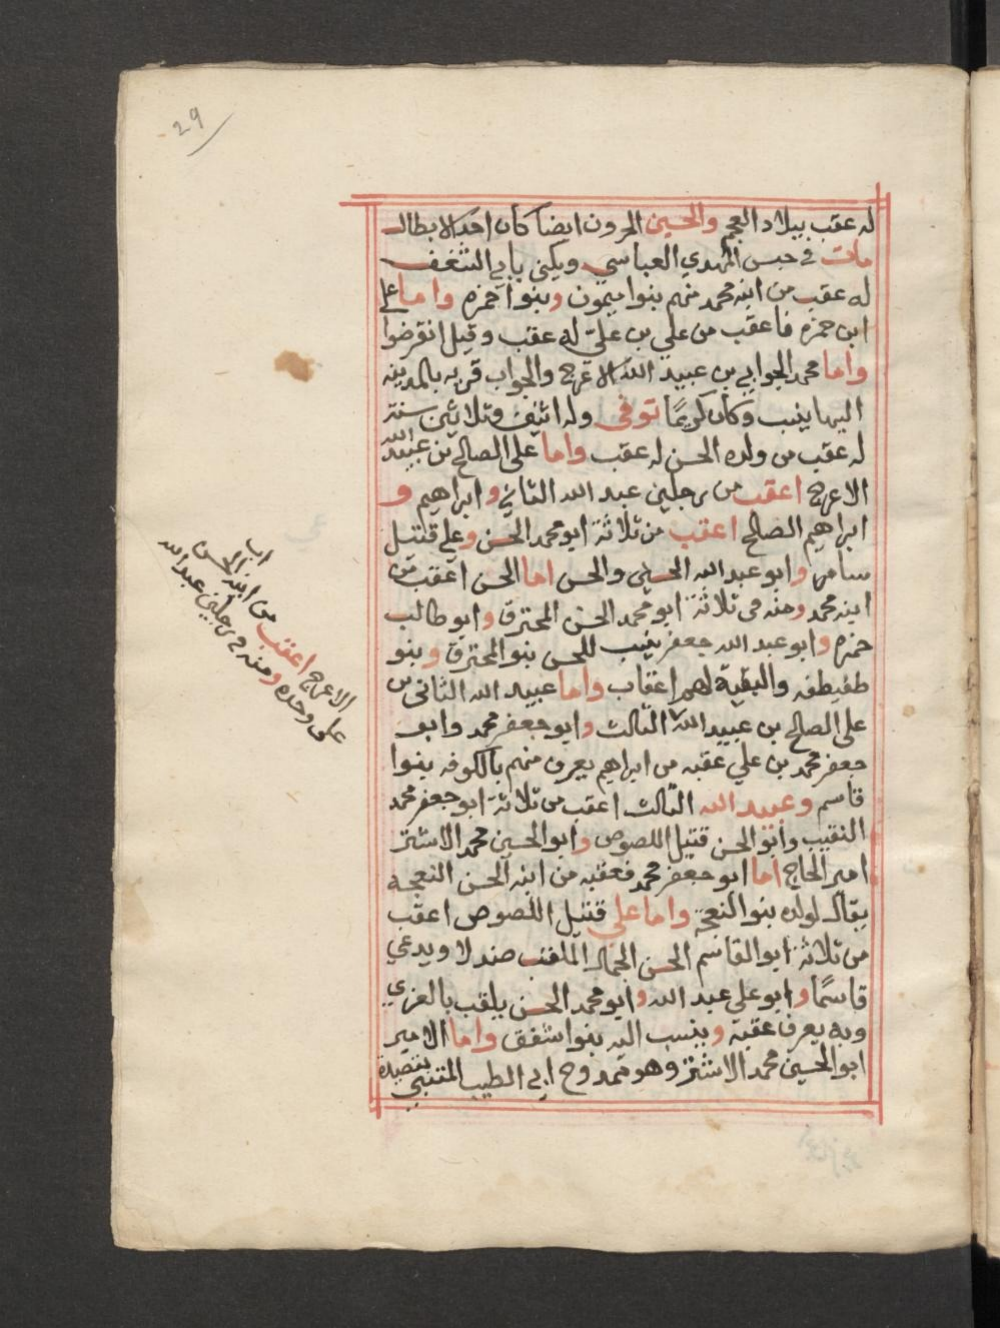 29
له عقب ببلاد العجم والحسين الحرون ايضا كان احد الابطال
مات في حبس المهدي العباسي ويكنى بابي الشغف
له عقب من ابنه محمد منهم بنوا ميمون وبنوا حمزه واما علي
ابن حمزه فاعقب من علي بن علي له عقب وقيل انقرضوا
واما محمد الجوابي بن عبيد الله الاعرج والجواب قريه بالمدينه
اليها ينسب وكان كريمًا توفى وله اثنين وثلاثين سنة
له عقب من ولده الحسن له عقب واما علي الصالح بن عبيد الله
الاعرج اعقب من رجلين عبد الله الثاني وابراهيم و
ابراهيم الصالح اعقب من ثلاثة ابو محمد الحسن وعلي قتيل
سامرا وابو عبد الله الحسين والحسن اما الحسن اعقب من
ابنه محمد ومنه من ثلاثة ابو محمد الحسن المحترق وابو طالب
حمزه وابو عبد الله جعفر ينسب للحسن بنو المحترق وبنو
طقيطقه والبقية لهم اعقاب واما عبيد الله الثانى بن
على الصالح بن عبيد الله الثالث وابو جعفر محمد وابو
جعفر محمد بن علي عقبه من ابراهيم يعرف منهم بالكوفه بنوا
قاسم وعبيد الله الثالث اعقب من ثلاثة ابو جعفر محمد
النقيب وابو الحسن قتيل اللصوص وابو الحسين محمد الاشتر
امير الحاج اما ابو جعفر محمد فعقبه من ابنه الحسن النعجه
يقال لولده بنو النعجة واما علي قتيل اللصوص اعقب
من ثلاثة ابو القاسم الحسن الجمال الملقب صندلا ويدعي
قاسمًا وابو على عبد الله وابو محمد الحسن يلقب بالغزي
وبه يعرف عقبه وينسب اليه بنوا شقشق واما الامير
ابو الحسين محمد الاشتر وهو ممدوح ابي الطيب المتنبي بقصيدة
من ابنه الحسن
الاعرج اعقب
على وحده ومنه في رجلين عبد الله